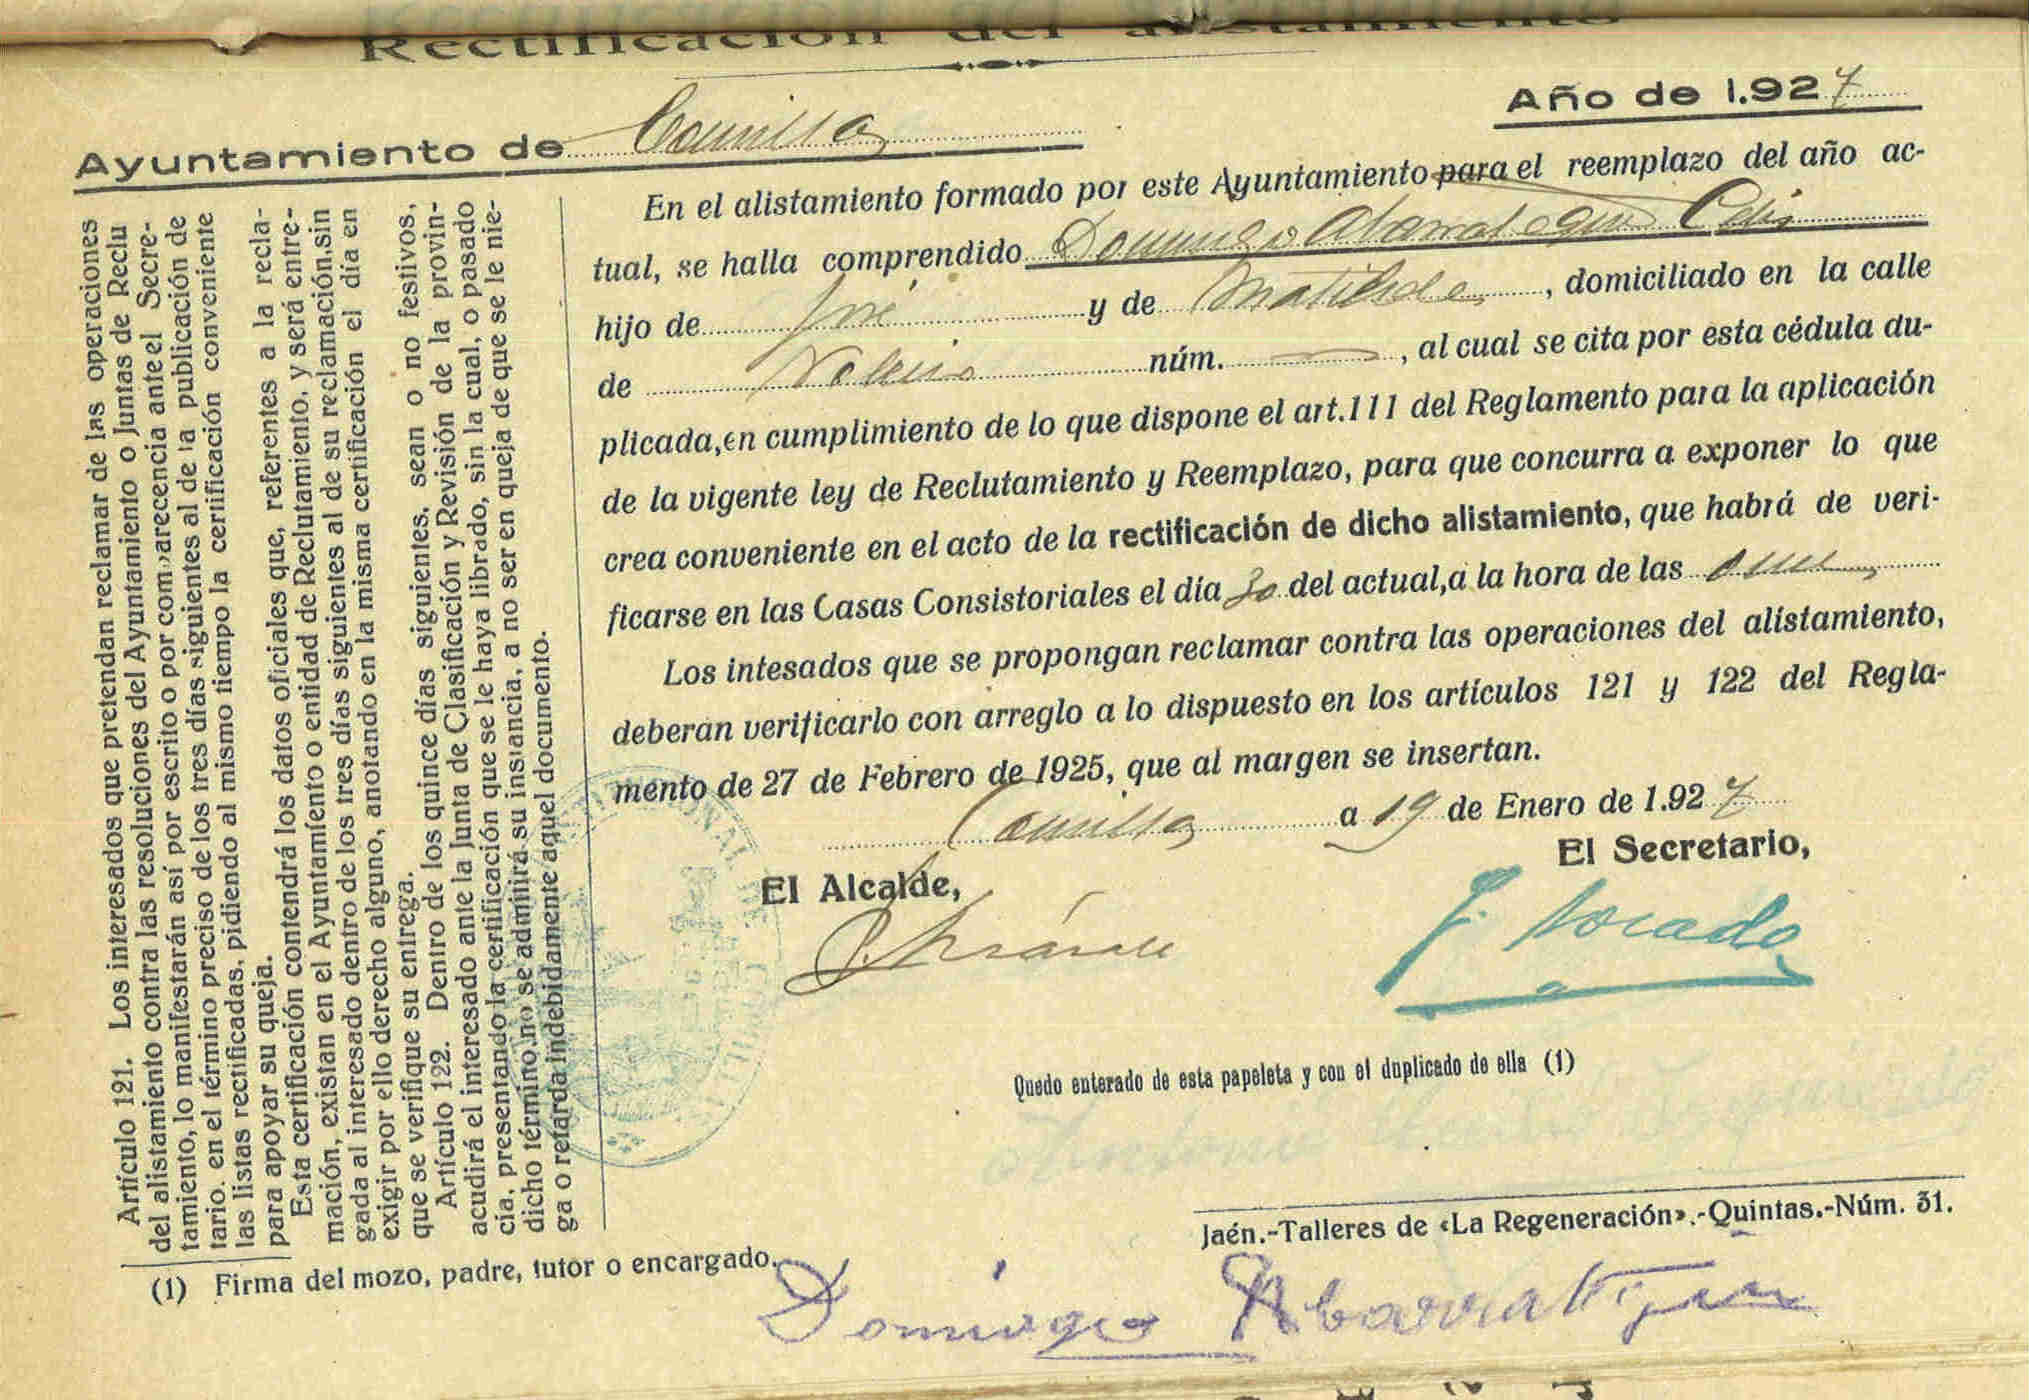 Rectificación del alistamiento
Año de 1.927
Ayuntamiento de Comillas
En el alistamiento formado por este Ayuntamiento para el reemplazo del año ac-
tual, se halla comprendido Domingo Abarrategui Celis
hijo de José y de Matilde, domiciliado en la calle
de núm. , al cual se cita por esta cédula du-
plicada,en cumplimiento de lo que dispone el art.111 del Reglamento para la aplicación
de la vigente ley de Reclutamiento y Reemplazo, para que concurra a exponer lo que
crea conveniente en el acto de la rectificación de dicho alistamiento, que habrá de veri-
ficarse en las Casas Consistoriales el día 30 del actual,a la hora de las once
Los intesados que se propongan reclamar contra las operaciones del alistamiento,
deberán verificarlo con arreglo a lo dispuesto en los artículos 121 y 122 del Regla-
mento de 27 de Febrero de 1925, que al margen se insertan.
Comillas a 19 de Enero de 1.927
El Secretario,
El Alcalde,
Quedo enterado de esta papeleta y con el duplicado de ella (1)
Artículo 121. Los interesados que pretendan reclamar de las operaciones
del alistamiento contra las resoluciones del Ayuntamiento o Juntas de Reclu
tamiento, lo manifestarán así por escrito o por comparecencia ante el Secre-
tario. en el término preciso de los tres días siguientes al de la publicación de
las listas rectificadas, pidiendo al mismo tiempo la certificación conveniente
para apoyar su queja.
Esta certificación contendrá los datos oficiales que, referentes a la recla-
mación, existan en el Ayuntamiento o entidad de Reclutamiento, y será entre-
gada al interesado dentro de los tres días siguientes al de su reclamación,sin
exigir por ello derecho alguno, anotando en la misma certificación el día en
que se verifique su entrega.
Artículo 122. Dentro de los quince días siguientes, sean o no festivos,
acudirá el interesado ante la Junta de Clasificación y Revisión de la provin-
cia, presentando la certificación que se le haya librado, sin la cual, o pasado
dicho término,no se admitirá su instancia, a no ser en queja de que se le nie-
ga o retarda indebidamente aquel documento.
Jaén.-Talleres de «La Regeneración».-Quintas.-Núm. 31.
(1) Firma del mozo, padre, tutor o encargado.
Domingo Abarrategui